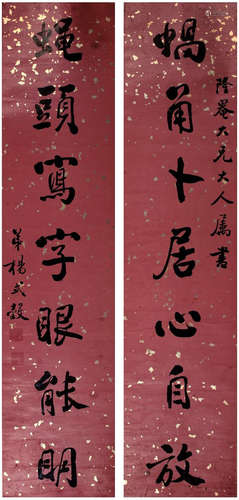 隆大兄大人屬書
蝸角卜居心自放
蠅頭寫字眼能明
弟楊式穀